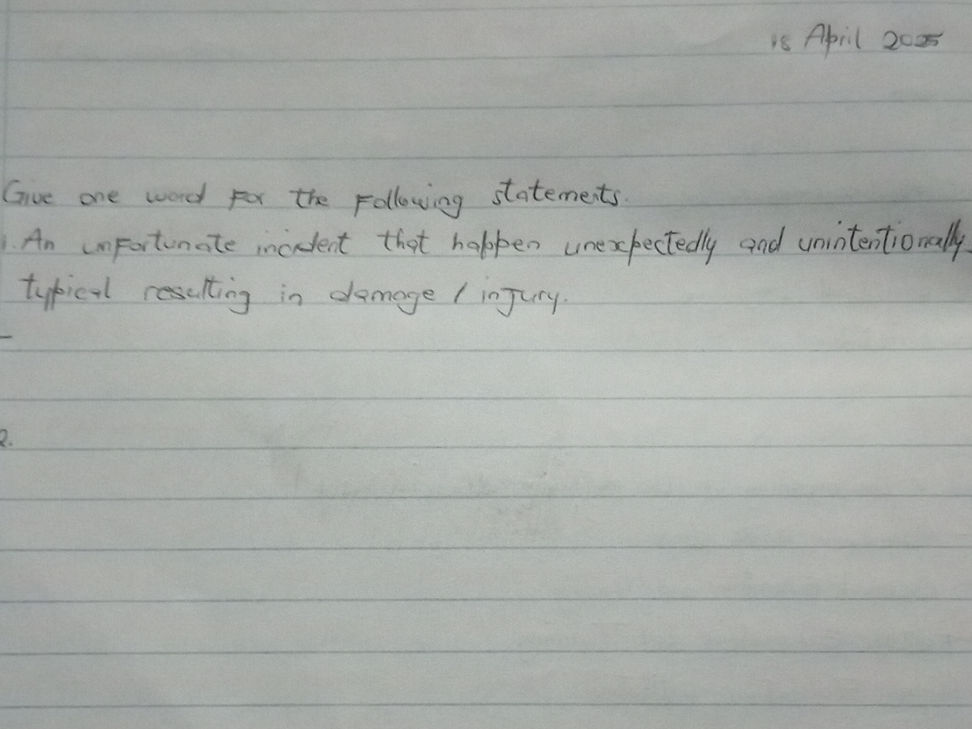 18 April 2025
Give one word for the following statements.
1. An unfortunate incident that happen unexpectedly and unintentionally
typical resulting in damage / injury.
2.